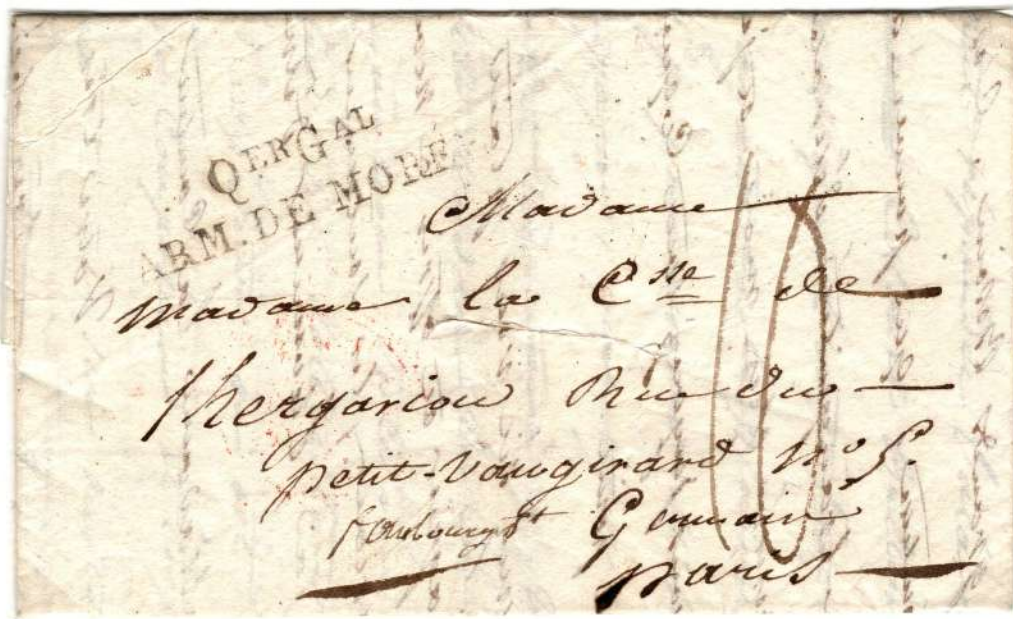 QERGAL
ARM. DE MORE
Madame
madame la Csse de
Kergariou Rue du
petit-Vaugirard no 5.
faubourg St Germain
paris
10